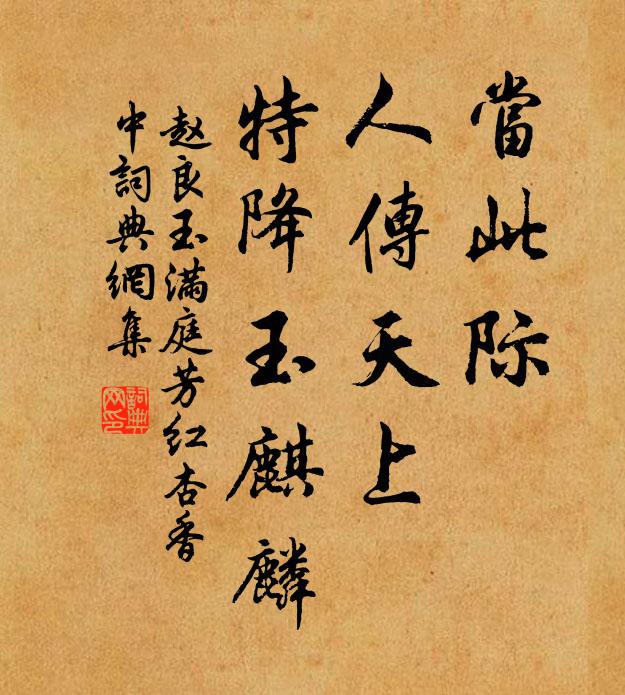 當此际
人傳天上
特降玉麒麟
赵良玉满庭芳红杏香
中詞典網集
詞典网印